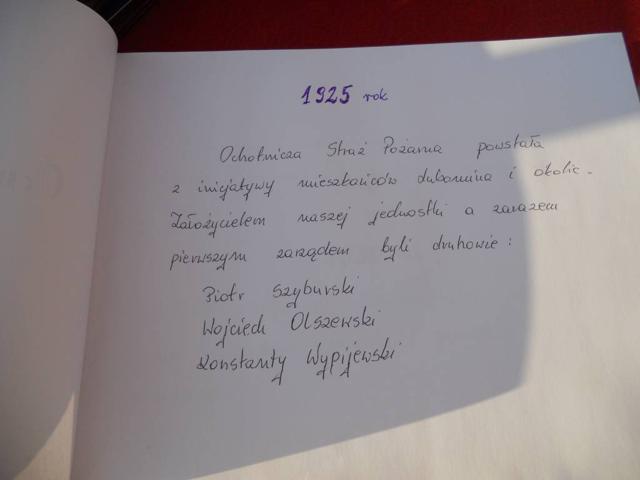 1925 rok
Ochotnicza Straż Pożarna powstała
z inicjatywy mieszkańców Lubomina i okolic.
Założycielem naszej jednostki a zarazem
pierwszym zarządem byli druhowie:
Piotr Szyburski
Wojciech Olszewski
Konstanty Wypijewski